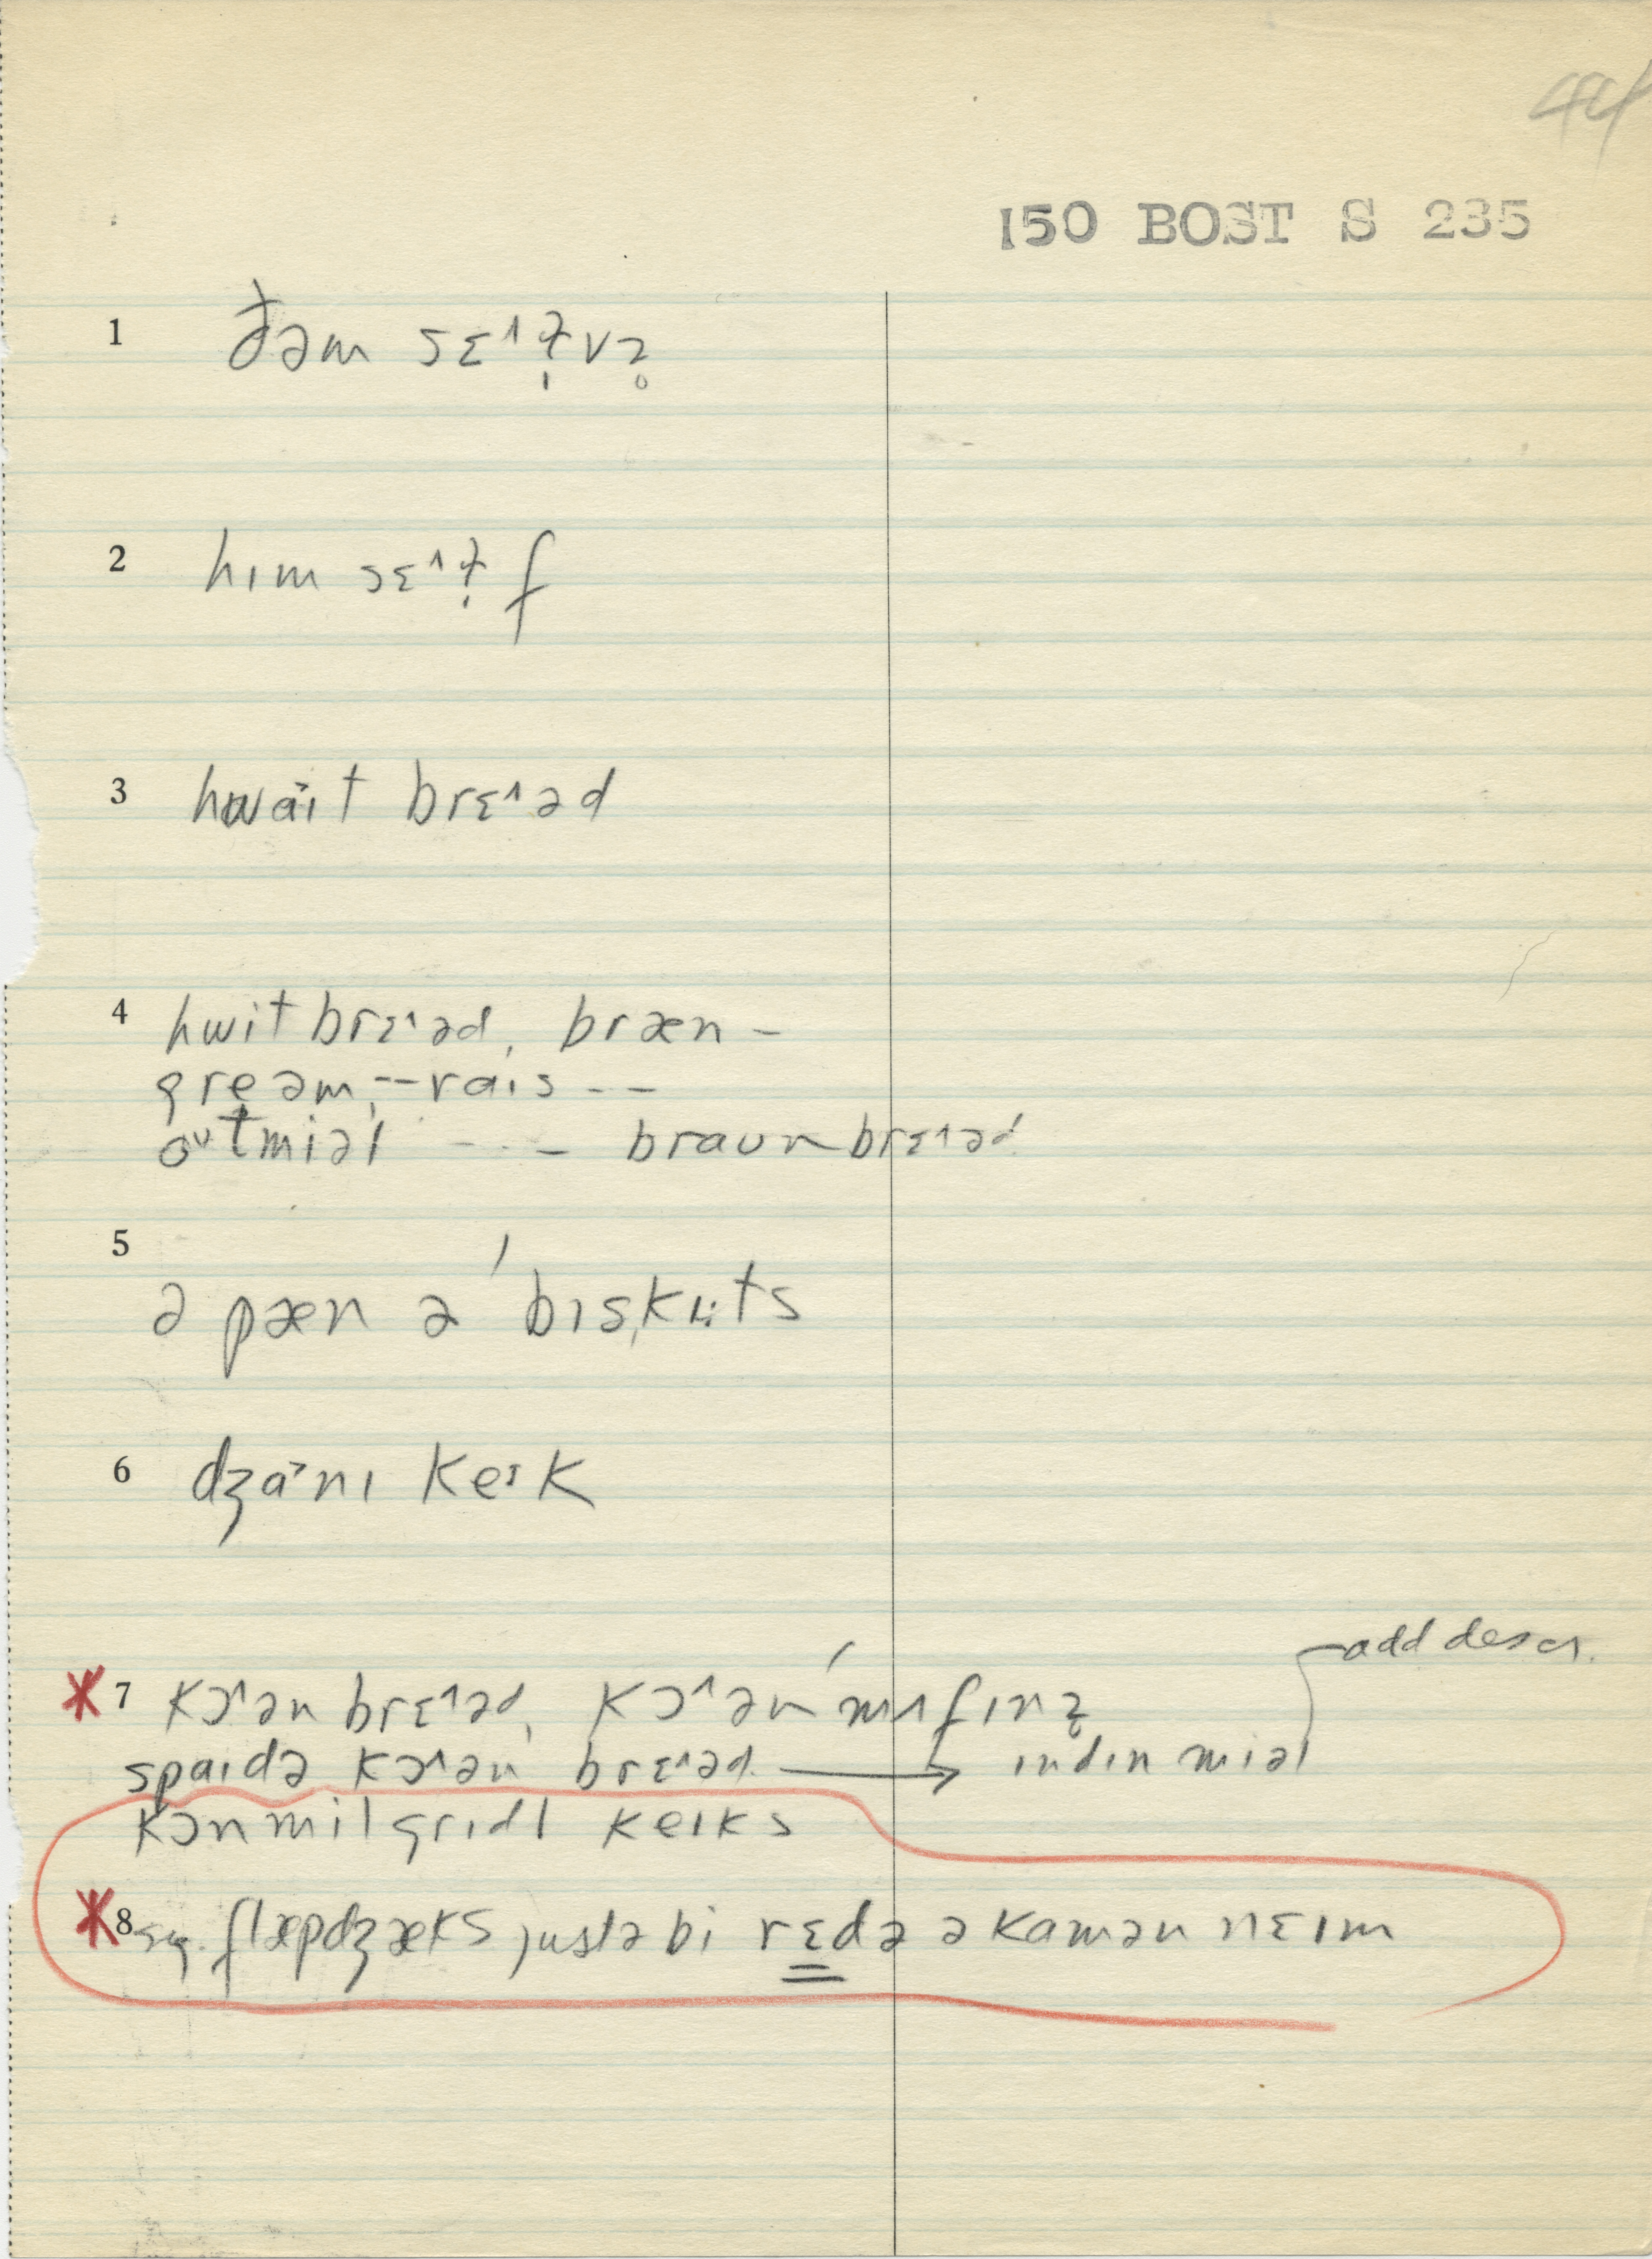 44
150 BOST S 235
1 ðəm sɛ˄ɫ̩vz̥
2 hɪm sɛ˄ɫ̩f
3 hwa˃ɪt brɛ˄əd
4 hwitbrɛ˄əd, bræn –
greəm, -- raɪs - -
oᶷtmiəl - - – braʊnbrɛ˄əd
5 ə pæn ə ˈbɪskɪ:ts
6 dʒa˃nɪ keɪk
*7 kɔ˄ən brɛ˄əd, kɔ˄ən ˈmʌfɪnz̥ add descr.
spaɪdə kɔ˄ən brɛ˄əd. → ɪndɪn miəl
kɔnmilgrɪdl keɪks
*8 flæpdʒæks justə bi rɛdə ə kamən nɛɪm